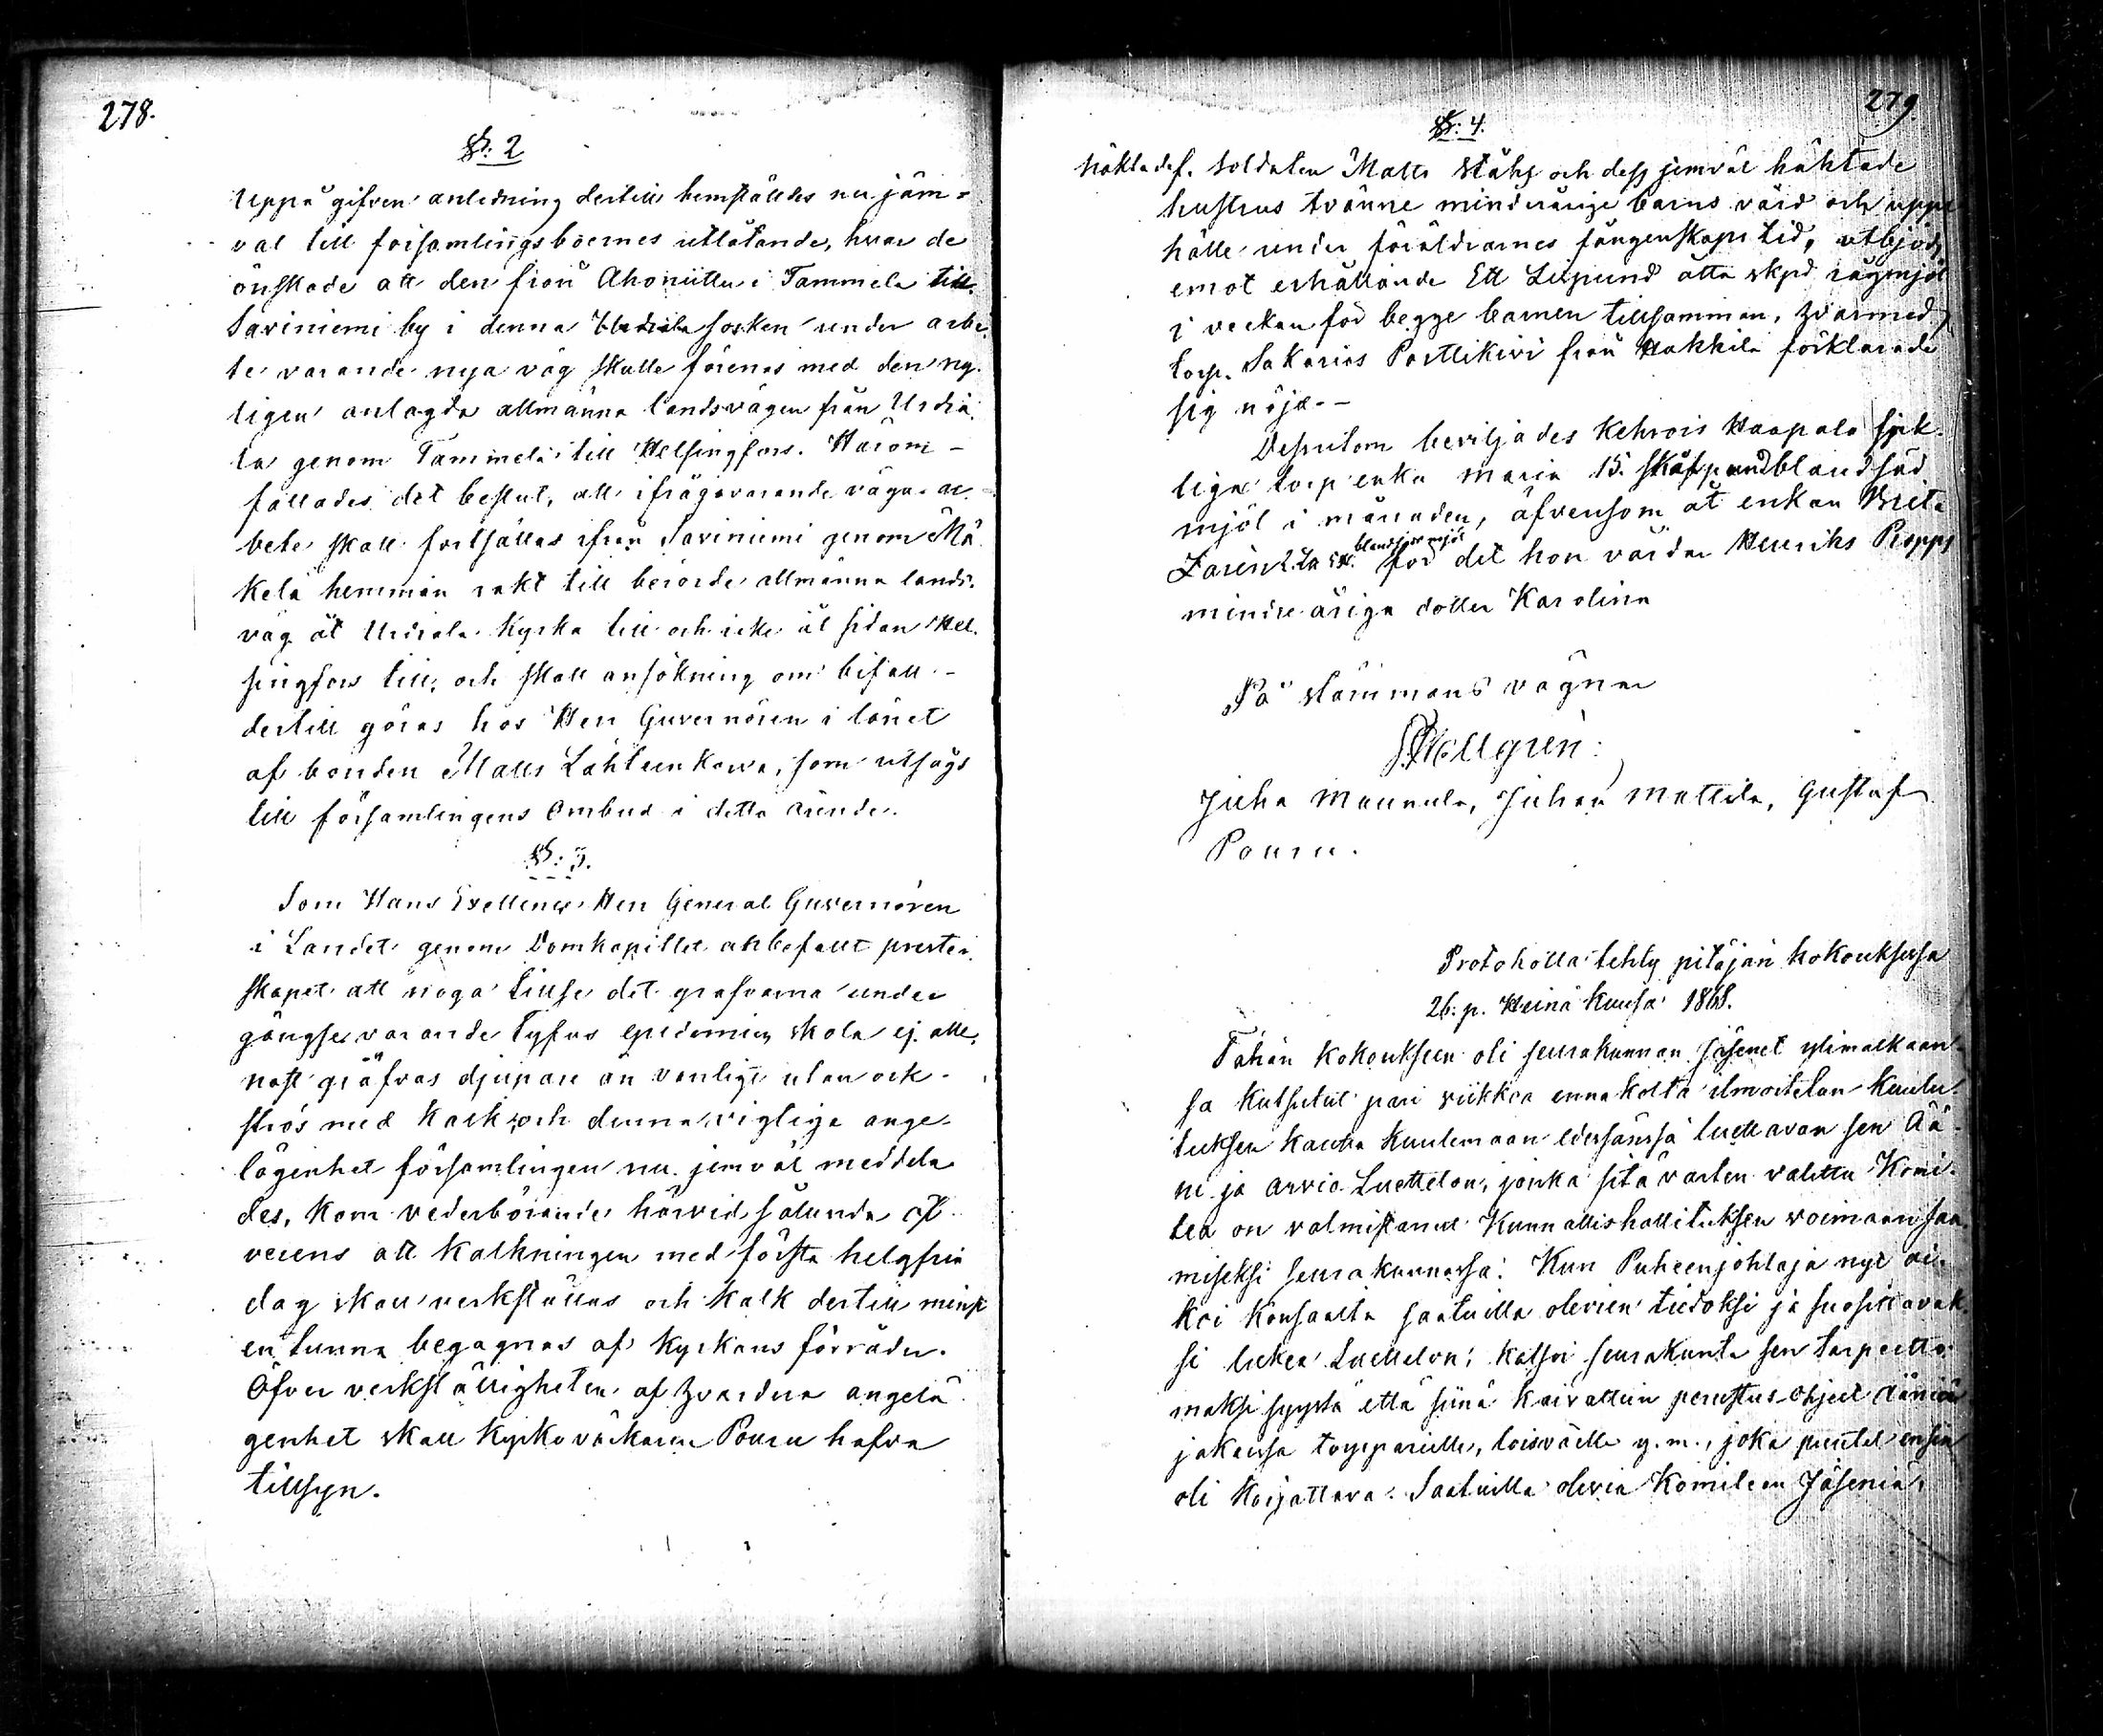 278.
§: 2
Uppå gifven anledning dertill hemställdes nu jäm-
väl till församlingsboernes utlåtande, hvar de
önskade att den från Ahoniittu i Tammela till
Saviniemi by i denna Urdiala socken under arbe-
te varande nya väg skulle förenas med den ny-
ligen anlagda allmänna landsvägen från Urdia-
la genom Tammela till Helsingfors. Härom-
fällades det beslut, att ifrågavarande väga ar-
bete skall fortsättas ifrån Saviniemi genom Mä-
kelä hemman rakt till berörde allmänna lands-
väg åt Urdiala Kyrka till och icke åt sidan Hel-
singfors till, och skall ansökning om bifall-
dertill göras hos Herr Guvernören i länet
af bonden Matts Lähteenkorva, som utsågs
till församlingens Ombud i detta ärende.
§: 3.
Som Hans Exellence Herr General Guvernören
i Landet genom Domkapitlet anbefallt prester-
skapet att noga tillse det grafvarna under
gängse varande Tyfus epidemien skola ej alle-
nast gräfvas djupare än vanligt utan ock-
strös med Kalk, och denna vigtige ange-
lägenhet församlingen nu jemväl meddela-
des, Kom vederbörande härvid sålunda öf-
verens att Kalkningen med första helgfria
dag skall verkställas och Kalk dertill minst
en tunna begagnas af Kyrkans förråder.
Öfver verkställigheten af hvardera angelä-
genhet skall Kyrkovärkaren Pouru hafva
tillsyn.
279.
§: 4.
häktade f. Soldaten Matts Ståhl och dess jemväl häktade
hustrus tvänne minderårige barns vård och uppe-
hälle under föräldrarnes fångenskaps tid, utbjöds
emot erhållande Ett Lispund åtta skpd rågmjöl
i veckan för begge barnen tillsamman, hvarmed
torp. Sakarias Porttikivi från Hakkila förklarade
sig nöjd.-
Dessutom beviljades Kehrois Haapala sjuk-
liga torp enka Maria 15. skålpund blandsäd
mjöl i månaden, äfvensom åt enkan Brita
blandsäd mjöl
för det hon vårdar Henriks Propps
minderåriga dotter Karolina
På Stämmans vägnar
Hellgrén:
Juha Maunula, Juhan Mattila, Gustaf
Pouru.
Protokolla tehty pitäjän kokouksessa
26. p. Heinä Kuussa 1868.
Tähän Kokoukseen oli seurakunnan jäsenet ylimalkaan-
sa Kutsutut pari viikkoa ennakolta ilmoitetun Kuulu-
tuksen kautta Kuulemaan edessänsä luettavan sen Ää-
ni ja arvio Luettelon, jonka sitä varten valittu Komi-
tea on valmistanut Kunnallishallituksen voimaan saa-
miseksi seurakunnassa. Kun Puheenjohtaja nyt ai-
koi Kansalta saatuilla olevien tiedoksi ja suosittavak-
si lukea Luettelon; katsoi seurakunta sen tarpeetto-
maksi syystä että siinä kaivattiin perustus-Ohjeet ääniän
jakaissa torpparille, loisväelle y.m., joka puutel ensin
oli Korjattava. Saatuilla olevia Komitean Jäseniä,